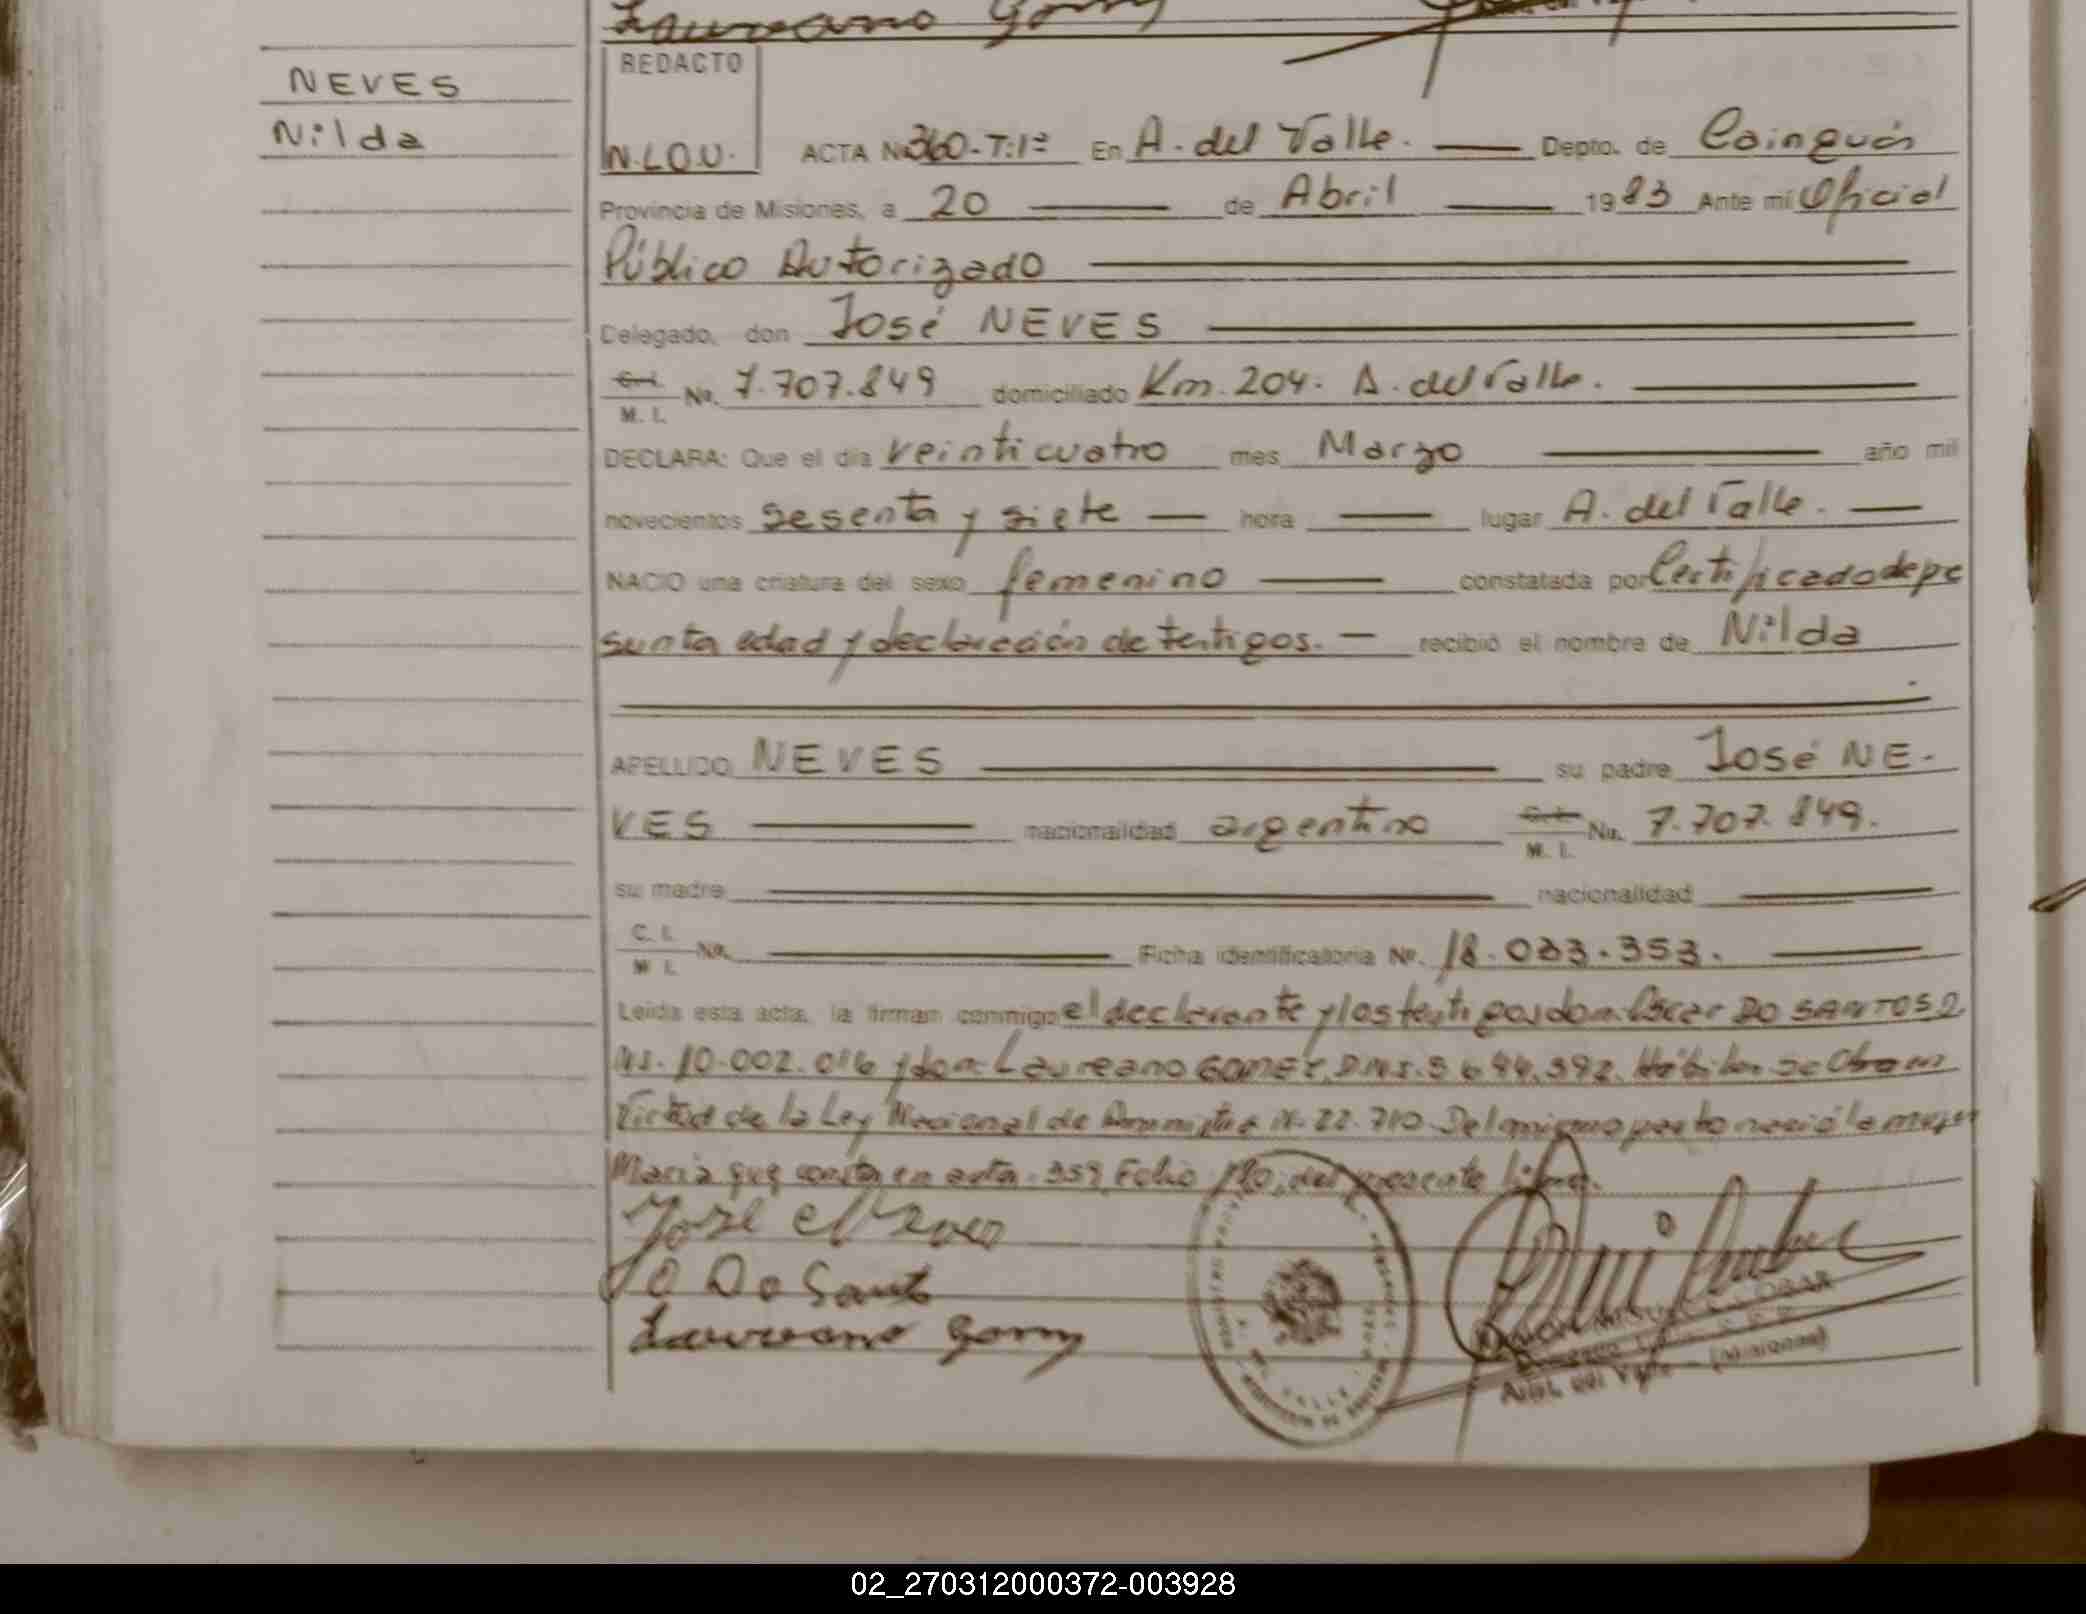 Laureano Gomy
NEVES
Nilda
REDACTO
N.L.O.U.
ACTA Nº 360-T:1º En A. del Valle. Depto. de Cainguás
Provincia de Misiones, a 20 de Abril 1983 Ante mí Oficial
Público Autorizado
Delegado, don José NEVES
C.I. M. I. No. 7.707.849 domiciliado Km. 204. A. del Valle.
DECLARA: Que el día veinticuatro mes Marzo año mil
novecientos sesenta y siete hora lugar A. del Valle.
NACIO una criatura del sexo femenino constatada por Certificado de pe
sunta edad y declaración de testigos. recibió el nombre de Nilda
APELLIDO NEVES su padre José NE-
VES nacionalidad argentino C.I. M. I. No. 7.707.849.
su madre nacionalidad
C. I. M. I. No. Ficha identificatoria Nº. 18.033.353.
Leída esta acta, la firman conmigo el declarante y los testigos don: Oscar DO SANTOS D
NI. 10.002.016 y don: Laureano GOMEZ, D.N.I. 8.644.392. Se en
Virtud de la Ley Nacional de Amnistía N. 22.710. Del mismo parto nació la mujer
María que consta en acta. 359, Folio 180, del presente libro.
José Neves
O Do Santo
Laureano Gomy
ESCOBAR
Delegado
Arist. del Valle - (Misiones)
02_270312000372-003928